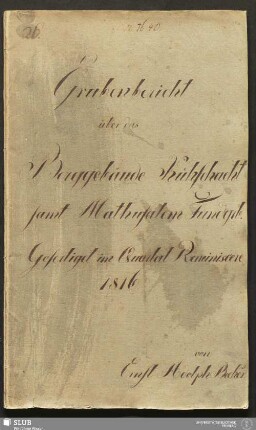 Grubenbericht
über das
Berggebäude
samt Mathusalem Fundgr.
Gefertiget im Quartal Reminiscere
1816
von
Ernst Adolph Becker
SLUB